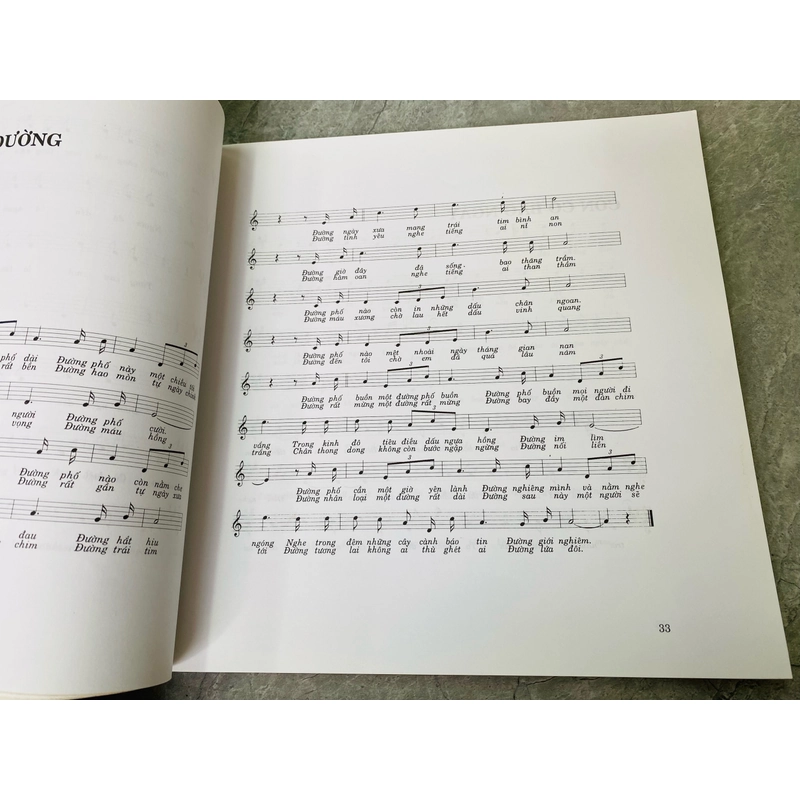 ĐƯỜNG
phố dài Đường phố này một chiều
rất bền Đường hao mòn tự ngày
người Đường phố cười.
vọng Đường máu hồng
Đường phố nào còn nằm chờ
Đường rất gần tự ngày xưa
đau Đường hắt hiu
chim Đường trái tim
Đường ngày xưa mang trái tim bình an
Đường tình yêu nghe tiếng ai nỉ non
Đường giờ đây dậy sóng bao tháng trầm.
Đường hầm oan nghe tiếng ai than thầm
Đường phố nào còn in những dấu chân ngoan.
Đường máu xương chờ lau hết dấu vinh quang
Đường phố nào mệt nhoài ngày tháng gian nan
Đường đến tôi chờ em đã quá lâu năm
3
Đường phố buồn một đường phố buồn Đường phố buồn mọi người đi
Đường rất mừng một đường rất mừng Đường bay đầy một đàn chim
vắng Trong kinh đô tiêu điều dấu ngựa hồng Đường im lìm
trắng Chân thong dong không còn bước ngập ngừng Đường nối liền
3
Đường phố cần một giờ yên lành Đường nghiêng mình và nằm nghe
Đường nhân loại một đường rất dài Đường sau này một người sẽ
ngóng Nghe trong đêm những cây cành báo tin Đường giới nghiêm.
tới Đường tương lai không ai thù ghét ai Đường lứa đôi.
33